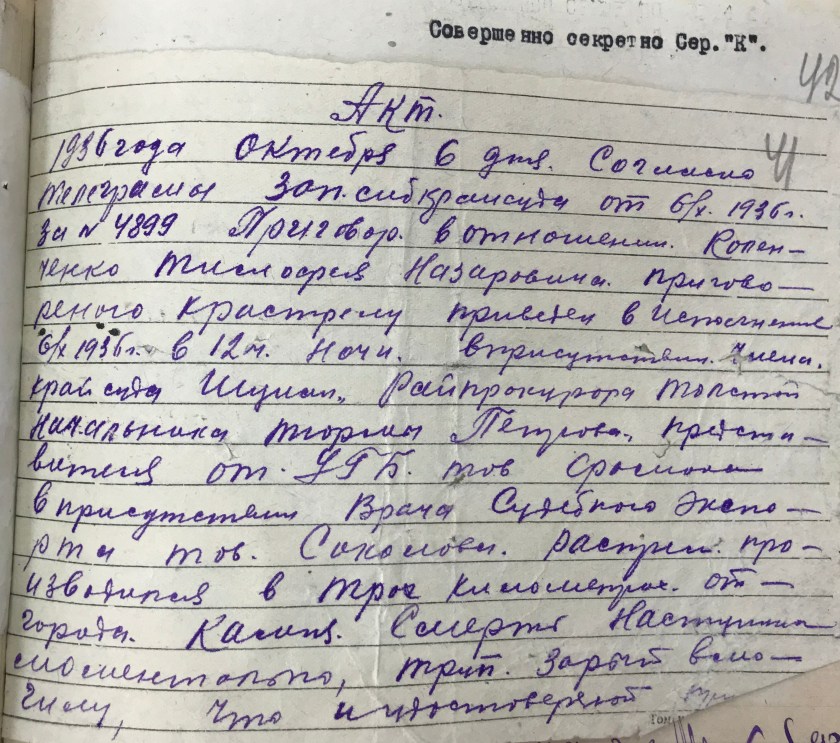 Совершенно секретно Сер."К".
42
Акт.
41
1936 года Октября 6 дня. Согласно
телеграмы Зап.сибкрайсуда от 6/X. 1936 г.
за № 4899 Приговор. в отношении. Копен-
ченко Тимофея Назаровича. приговo-
реного красстрелу приведен в исполнение
6/X 1936 г. в 12 ч. Ночи. вприсутствии. Члена.
край суда Райпрокурора Толстой
начальника тюрмы Петрова., предста-
вителя от. УГБ. тов
вприсутствии Врача Судебного Экспо-
рта тов. Соколова. расстрел. про-
изводился в трёх километрах. от-
города. Смерть Наступила
моментально, труп. Зарыт вмо-
гилу, Что и удостоверяю